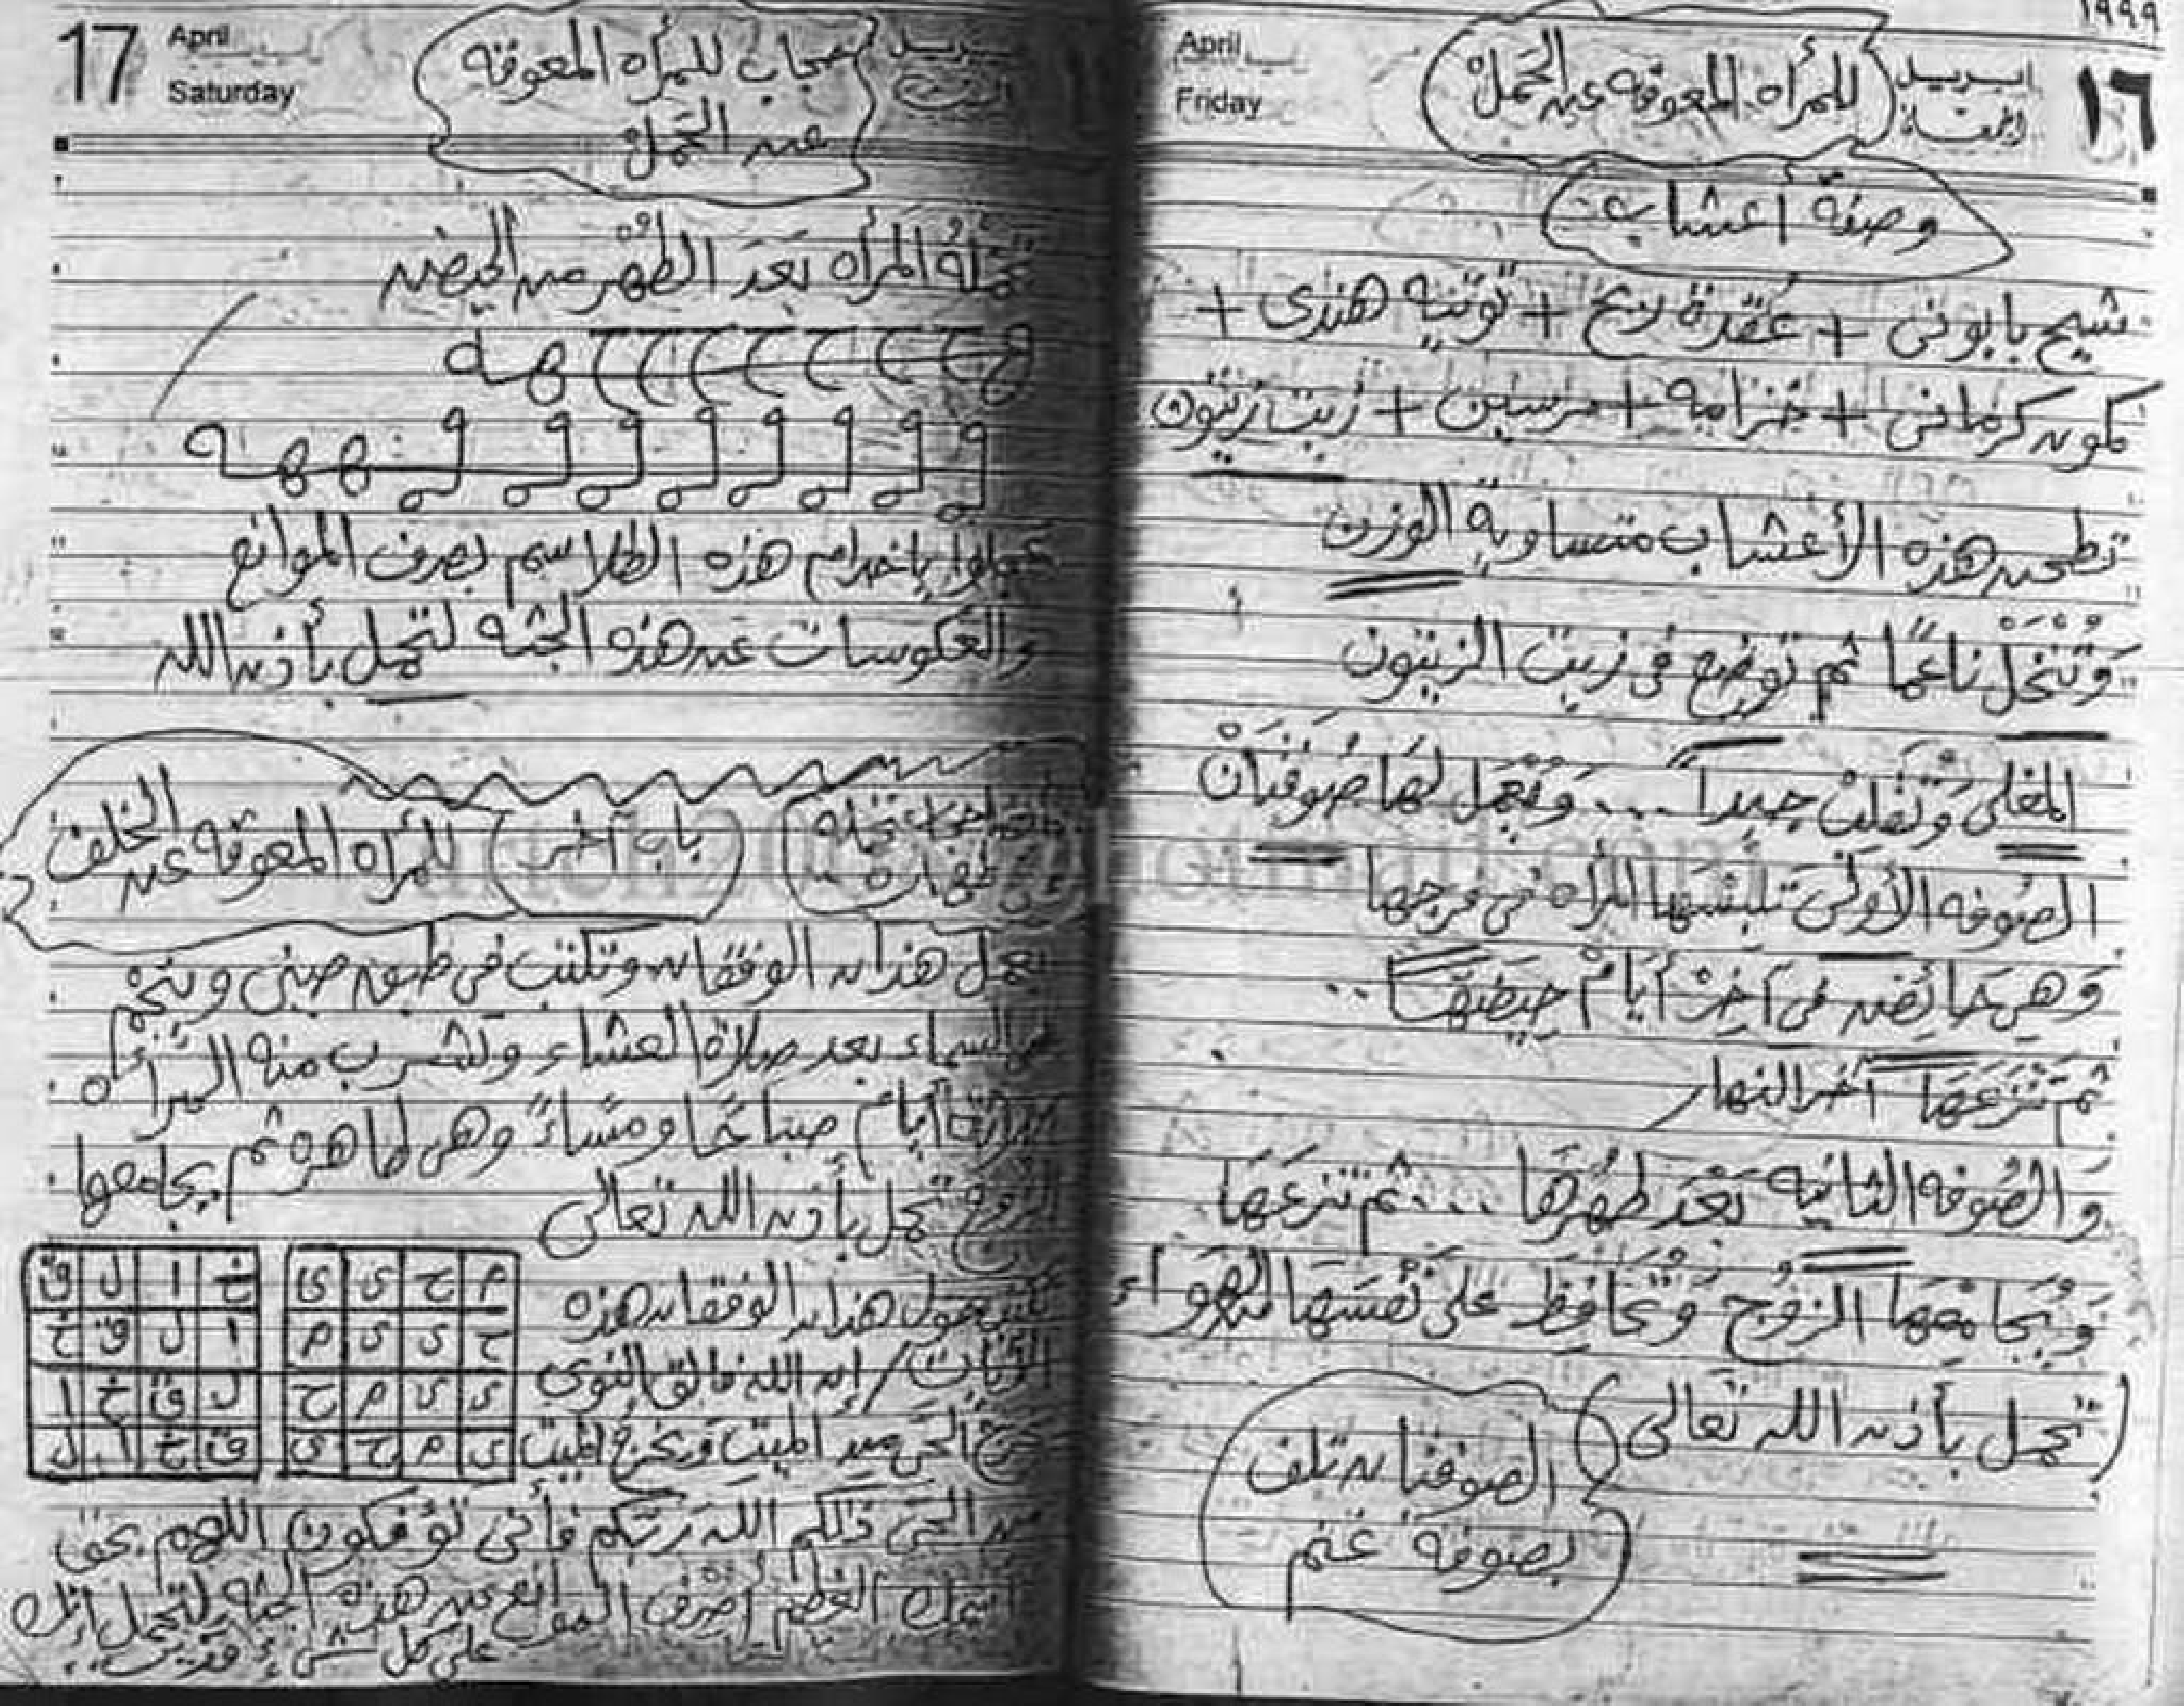 ١٩٩٩
١٦
ابريل
April
Friday
للمرأه المعوقه عن الحَمل
وصفة أعشاب
شيح بابونى + عُقدة ريح + توتيه هندى +
كمون كرمانى + خزامه + مرسين + زيت زيتون
تطحن هذه الأعشاب متساوية الوزن
وَتُنْخَل ناعمًا ثم توضع فى زيت الزيتون
المغلى وَتُفلت جيداً ... وَتعمل لهَا صُوفتَانْ
الصُوفه الأولىَ تلبسَها المرأه فى فرجها
وَهىَ حَائِضه فى آخِرْ أيَامْ حِيضتهَا ..
ثم تنزَعَهَا آخر النهار
وَالصُوفه الثانيه بَعْدَ طهُرهَا ... ثم تنزعَهَا
وَيُجَامعهَا الزوْج وَتُحَافِظ علىَ نفسَهَا الهَوَاء
(تحمل بأذن الله تعالى)
الصوفتان تلف
بصوفة غنم
17
April
Saturday
حجاب للمرأه المعوقه
عن الحَمل
تحمَلهُ المرأه بَعدَ الطُهر من الحيض
هذه الطلاسم بصرف الموانع
والعكوسات عن هذه الجثه لتحمل بأذن الله
باب آخر
للمرأه المعوقه عن الخلف
هذان الوفقان وتكتب فى طبق صينى وينجم
السماء بعد صلاة العشاء وتشرب منه المرأه
أيام صباحًا ومسَاءً وهى طاهره ثم يجامعها
الزوج تحمل بأذن الله تعالى
م ح ى ى
ح ى ى م
ى ى م ح
ى م ح ى
خ ا ل ق
ا ل ق خ
ل ق خ ا
ق خ ا ل
حول هذان الوفقان هذه
الآيات / إن الله فالق النوى
يخرج الحَى من الميت ويخرج الميت
من الحَى ذلكم الله رَبّكم فأنى تؤفكون اللهم بحق
اسمك العظيم أصرف الموانع عن هذه الجثه لتحمل إنك
على كل شىء قدير